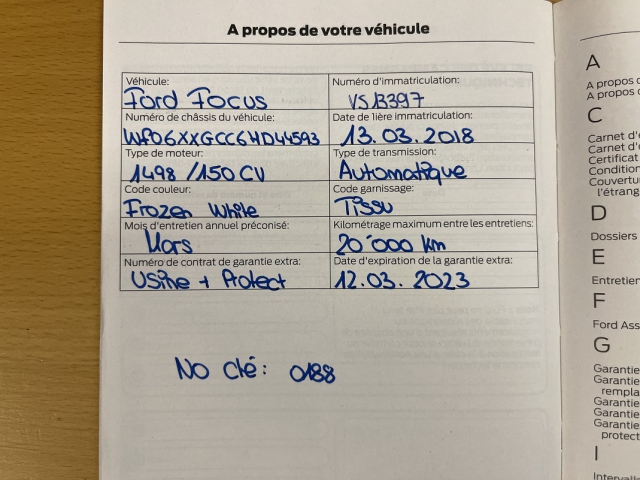 A propos de votre véhicule
Véhicule: Numéro d'immatriculation:
Ford Focus VS13397
Numéro de châssis du véhicule: Date de 1ière immatriculation:
WF06XXGCC6HD44593 13.03.2018
Type de moteur: Type de transmission:
1498 / 150 CV Automatique
Code couleur: Code garnissage:
Frozen White Tissu
Mois d'entretien annuel préconisé: Kilométrage maximum entre les entretiens:
Mars 20'000 km
Numéro de contrat de garantie extra: Date d'expiration de la garantie extra:
Usine + Protect 12.03.2023
No clé: 0188
A
A propos
A propos
C
Carnet d'
Carnet d'
Certificat
Condition
Couvertu
l'étrang
D
Dossiers
E
Entretien
F
Ford Ass
G
Garantie
Garantie
rempla
Garantie
Garantie
Garantie
protect
I
Intervall